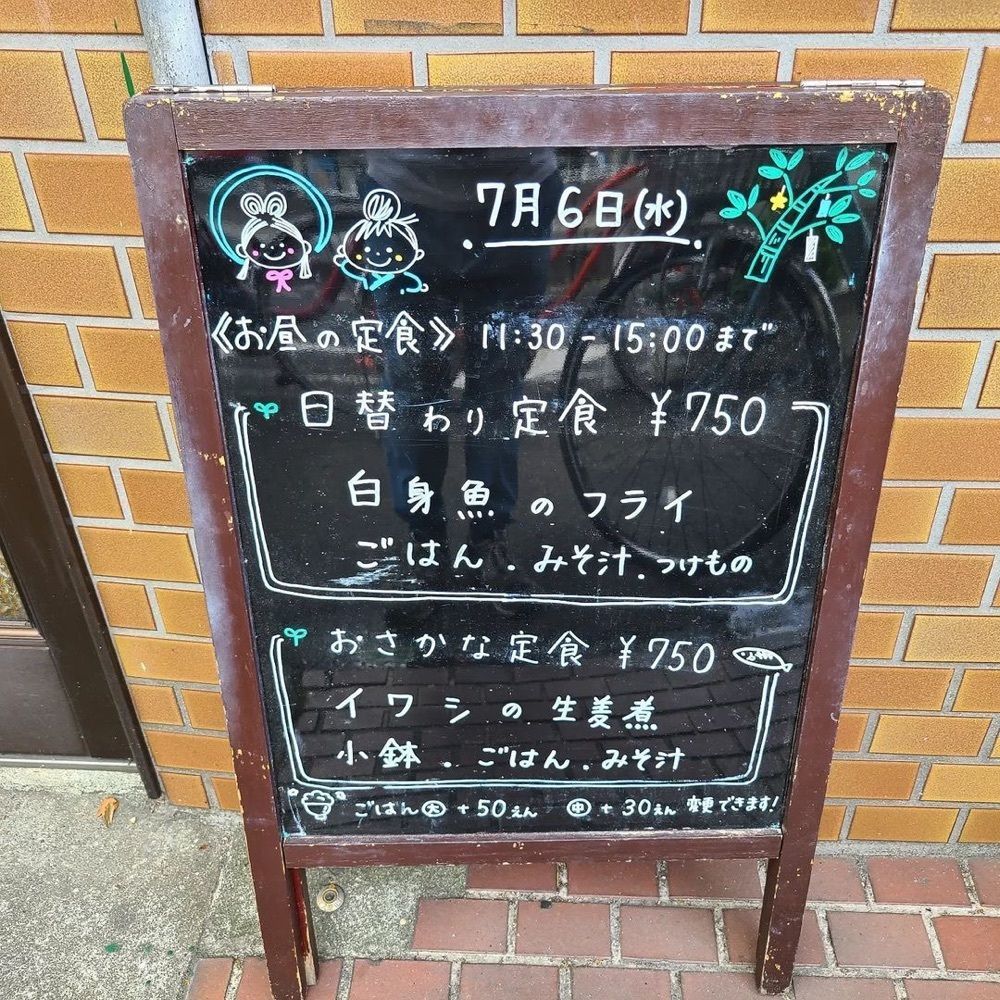 7月6日(水)
《お昼の定食》 11:30-15:00まで
日替わり定食 ¥750
白身魚のフライ
ごはん.みそ汁.つけもの
おさかな定食 ¥750
イワシの生姜煮
小鉢.ごはん.みそ汁
ごはん㊛ +50えん ㊥ +30えん 変更できます!